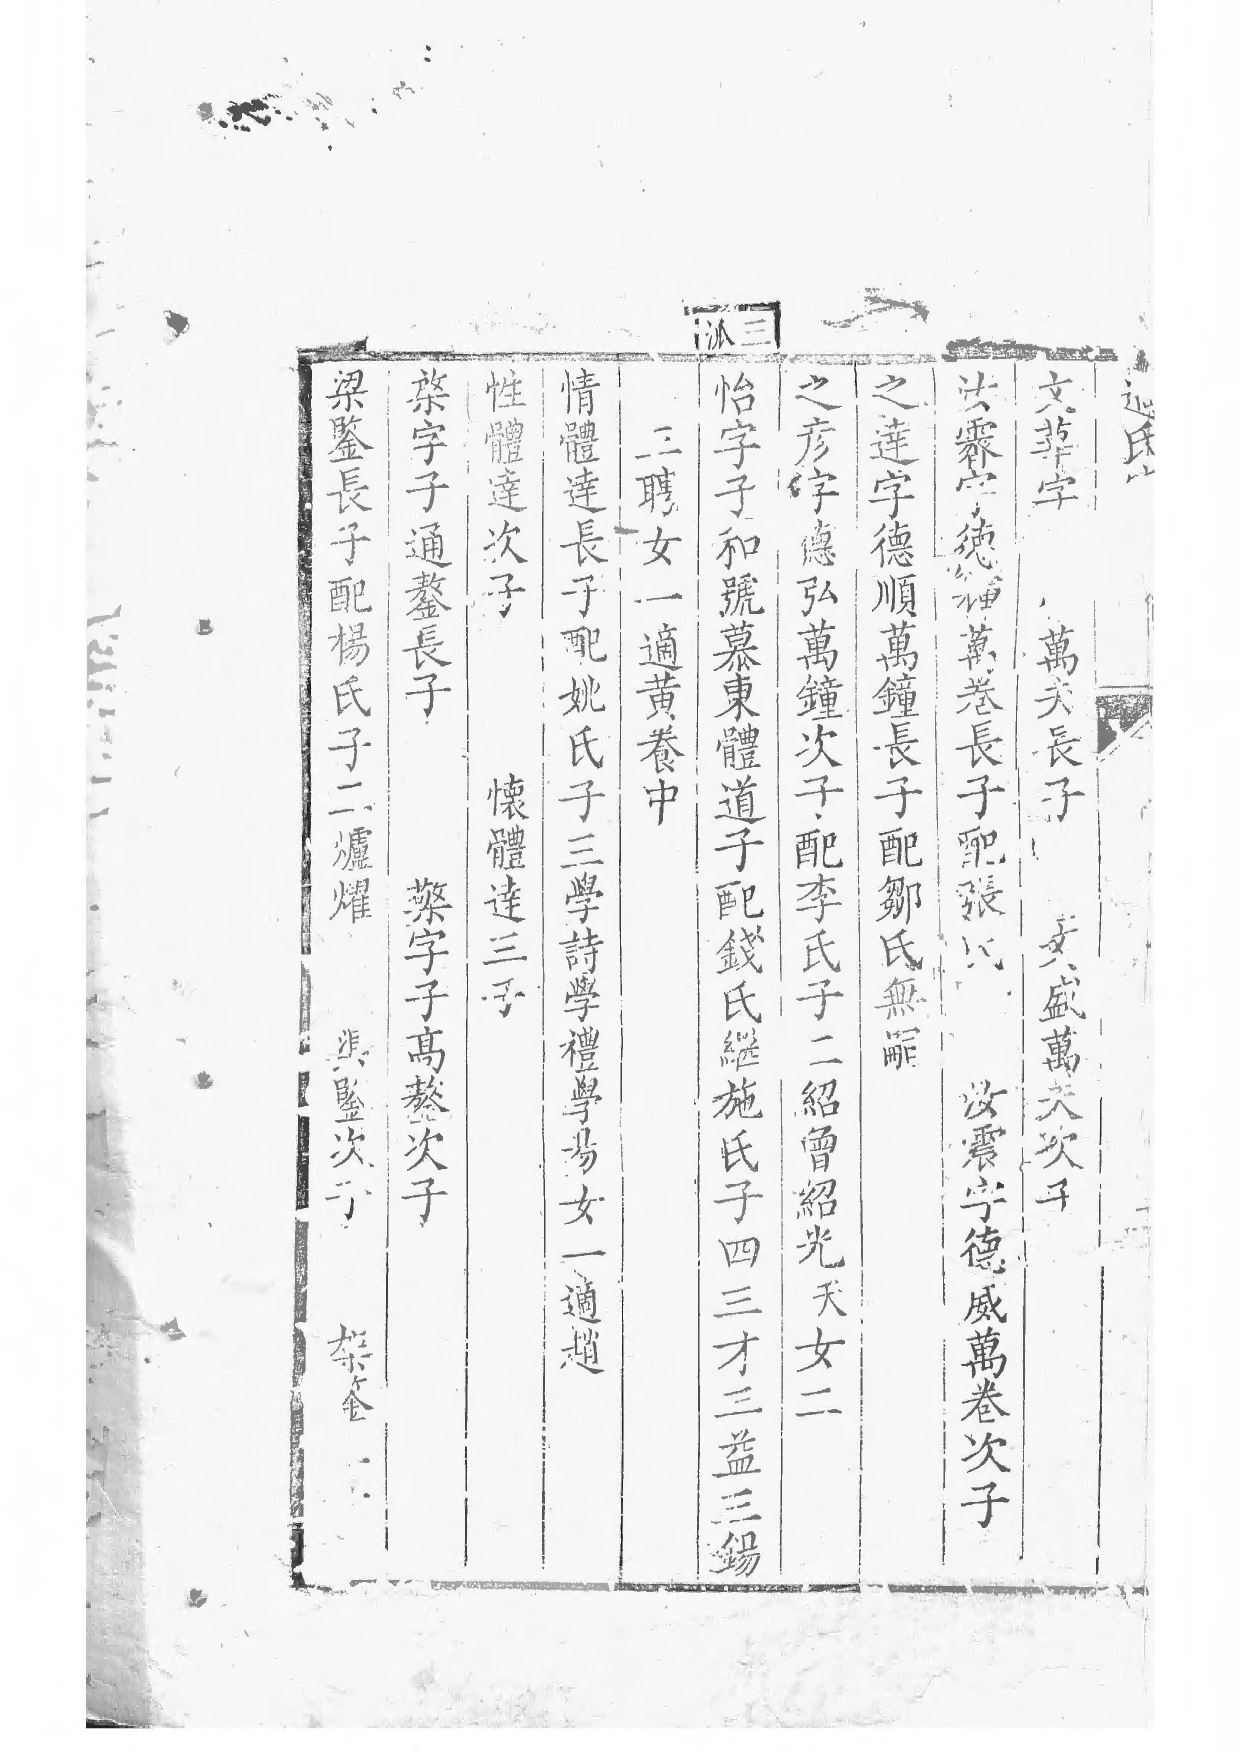 三派
氏宗
文華字　萬夫長子　文盛萬夫次子
汝霖字德鍾萬卷長子配張氏　汝震字德威萬卷次子
之達字德順萬鐘長子配鄒氏無嗣
之彦字德弘萬鐘次子配李氏子二紹曾紹光夭女二
怡字子和號慕東體道子配錢氏繼施氏子四三才三益三錫
三聘女一適黄養中
情體達長子配姚氏子三學詩學禮學易女一適趙
性體達次子　懷體達三子
棨字子通鏊長子　檠字子高鏊次子
梁鑒長子配楊氏子二爐燿　鑒次子